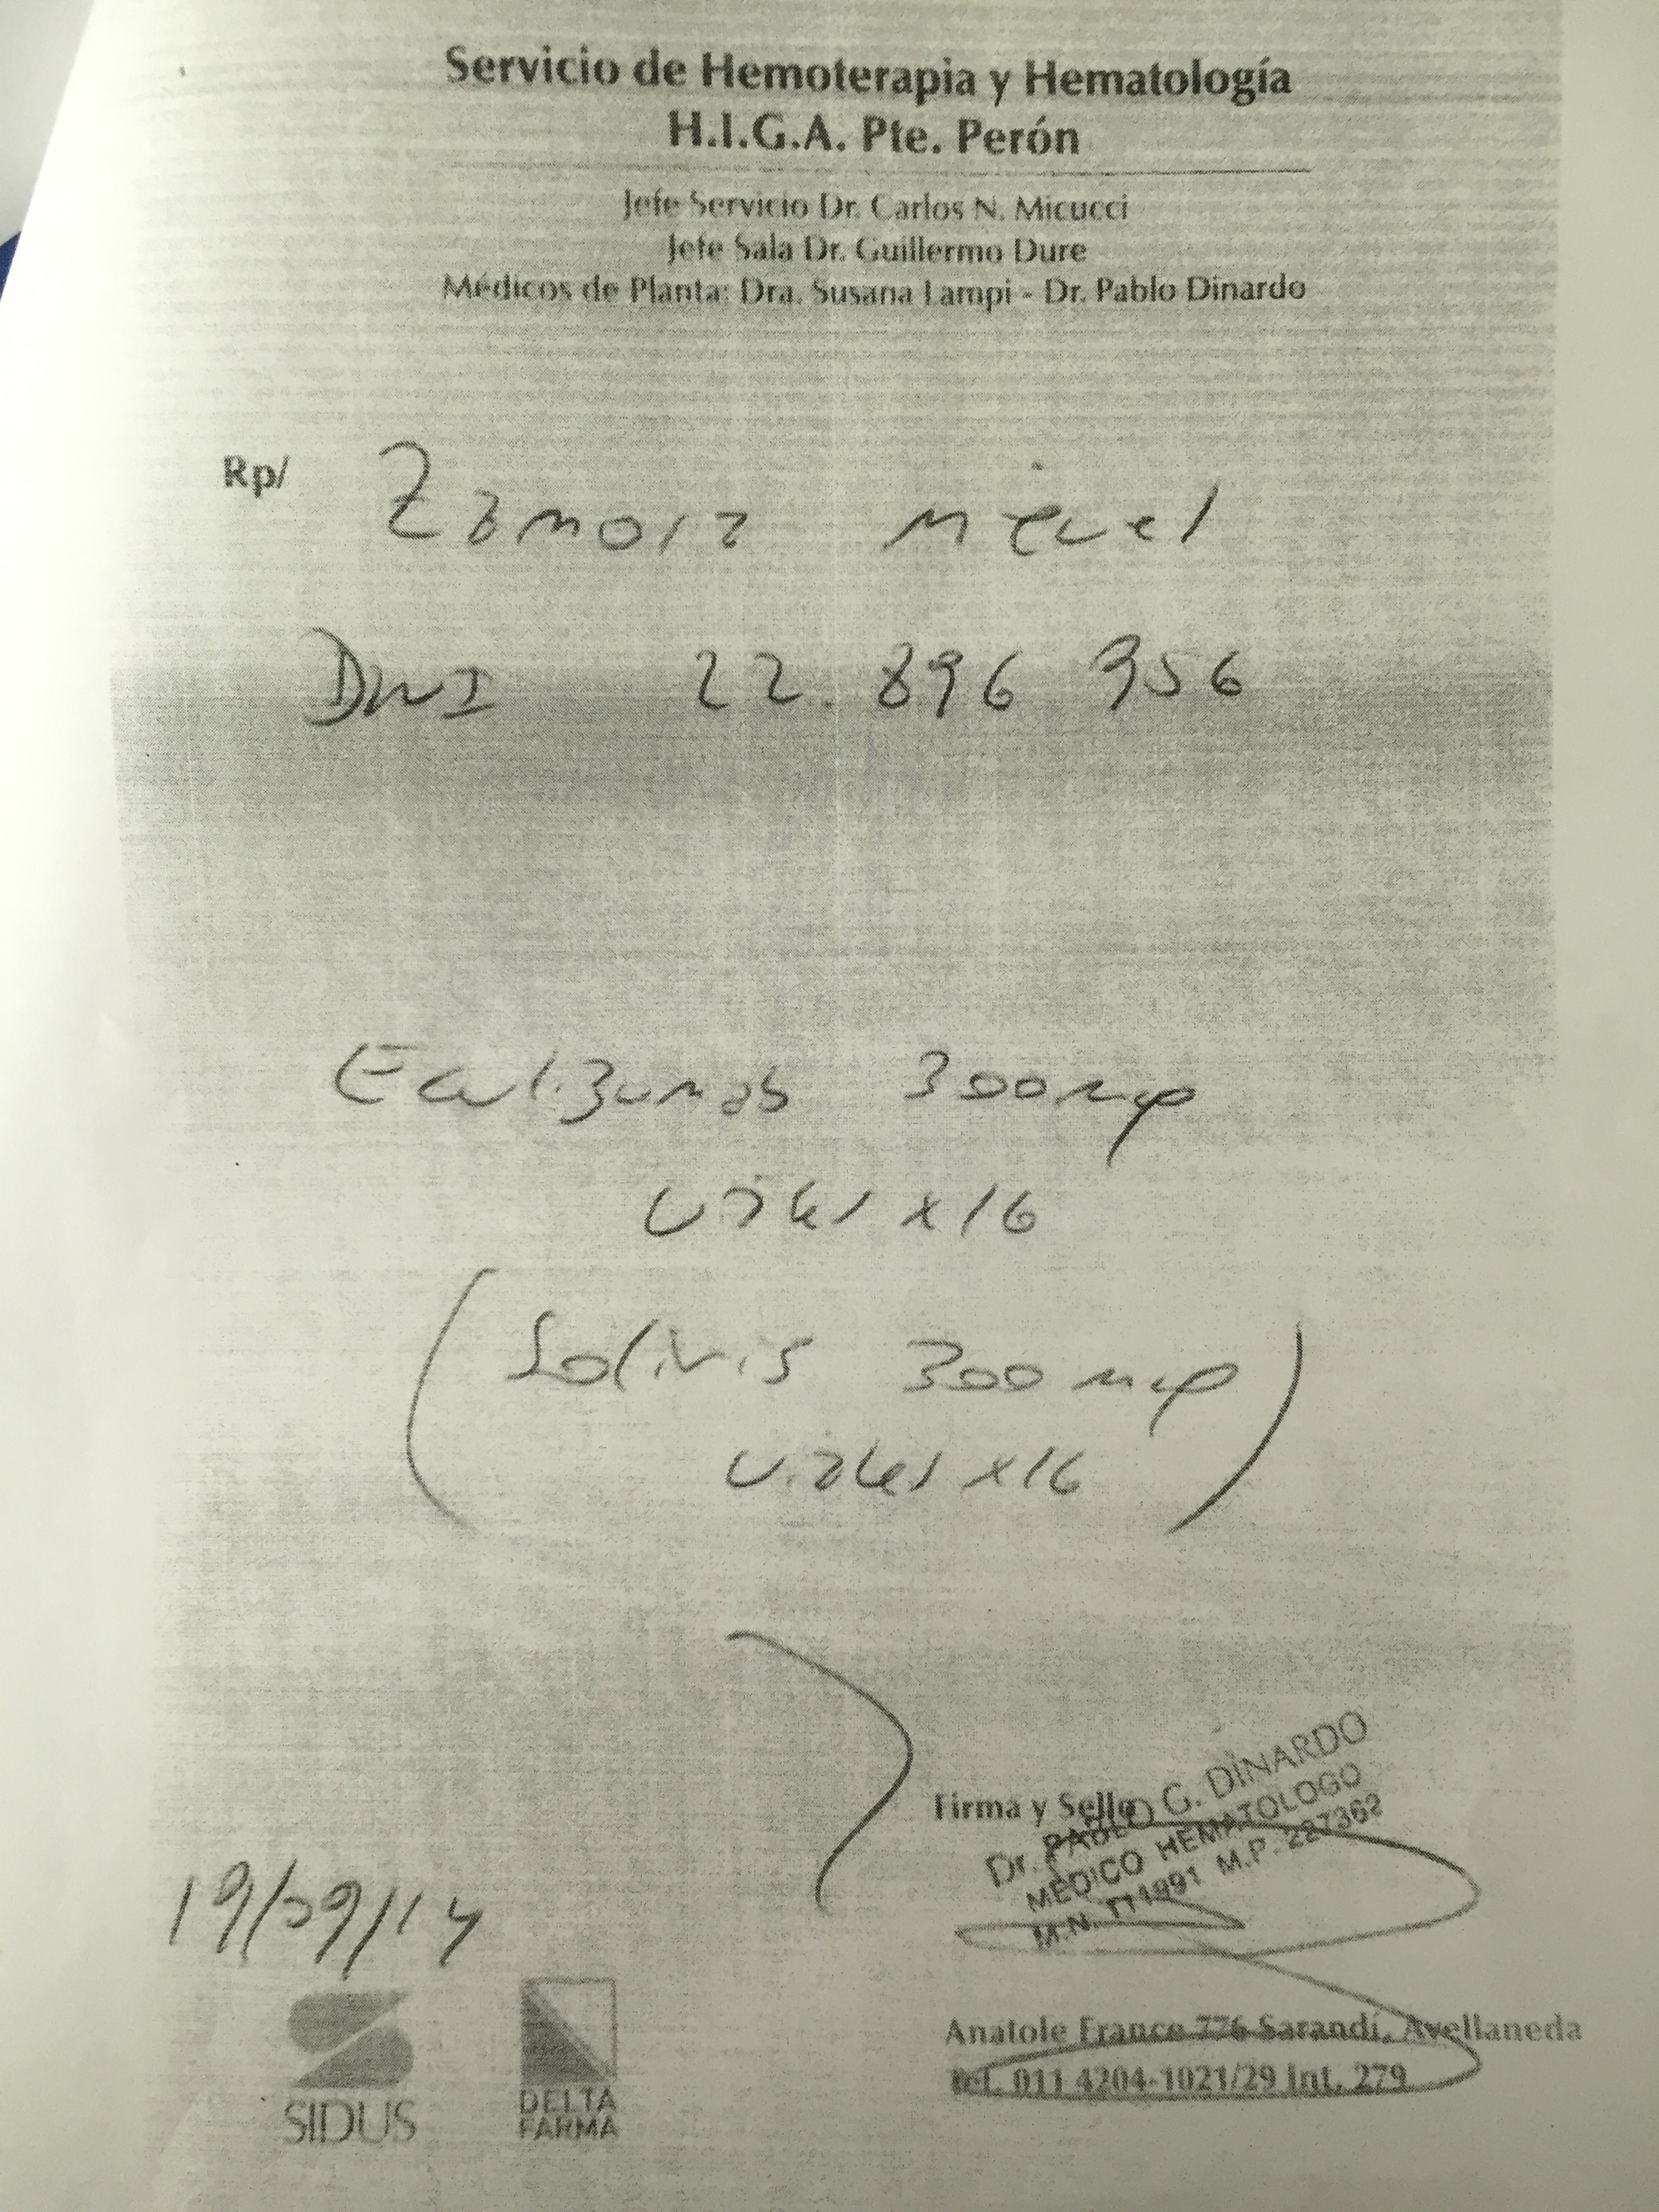 Servicio de Hemoterapia y Hematología
H.I.G.A. Pte. Perón
Jefe Servicio Dr. Carlos N. Micucci
Jefe Sala Dr. Guillermo Dure
Médicos de Planta: Dra. Susana Lampi - Dr. Pablo Dinardo
Rp/ Zamora Miguel
DNI 22.896 956
Eculizumab 300 mg
viales x 16
(Soliris 300 mg
viales x 16)
Firma y Sello
Dr. PABLO G. DINARDO
MEDICO HEMATOLOGO
M.N. 111991 M.P. 227362
19/09/14
SIDUS
DELTA
FARMA
Anatole France 776 Sarandí, Avellaneda
Tel. 011 4204-1021/29 Int. 279